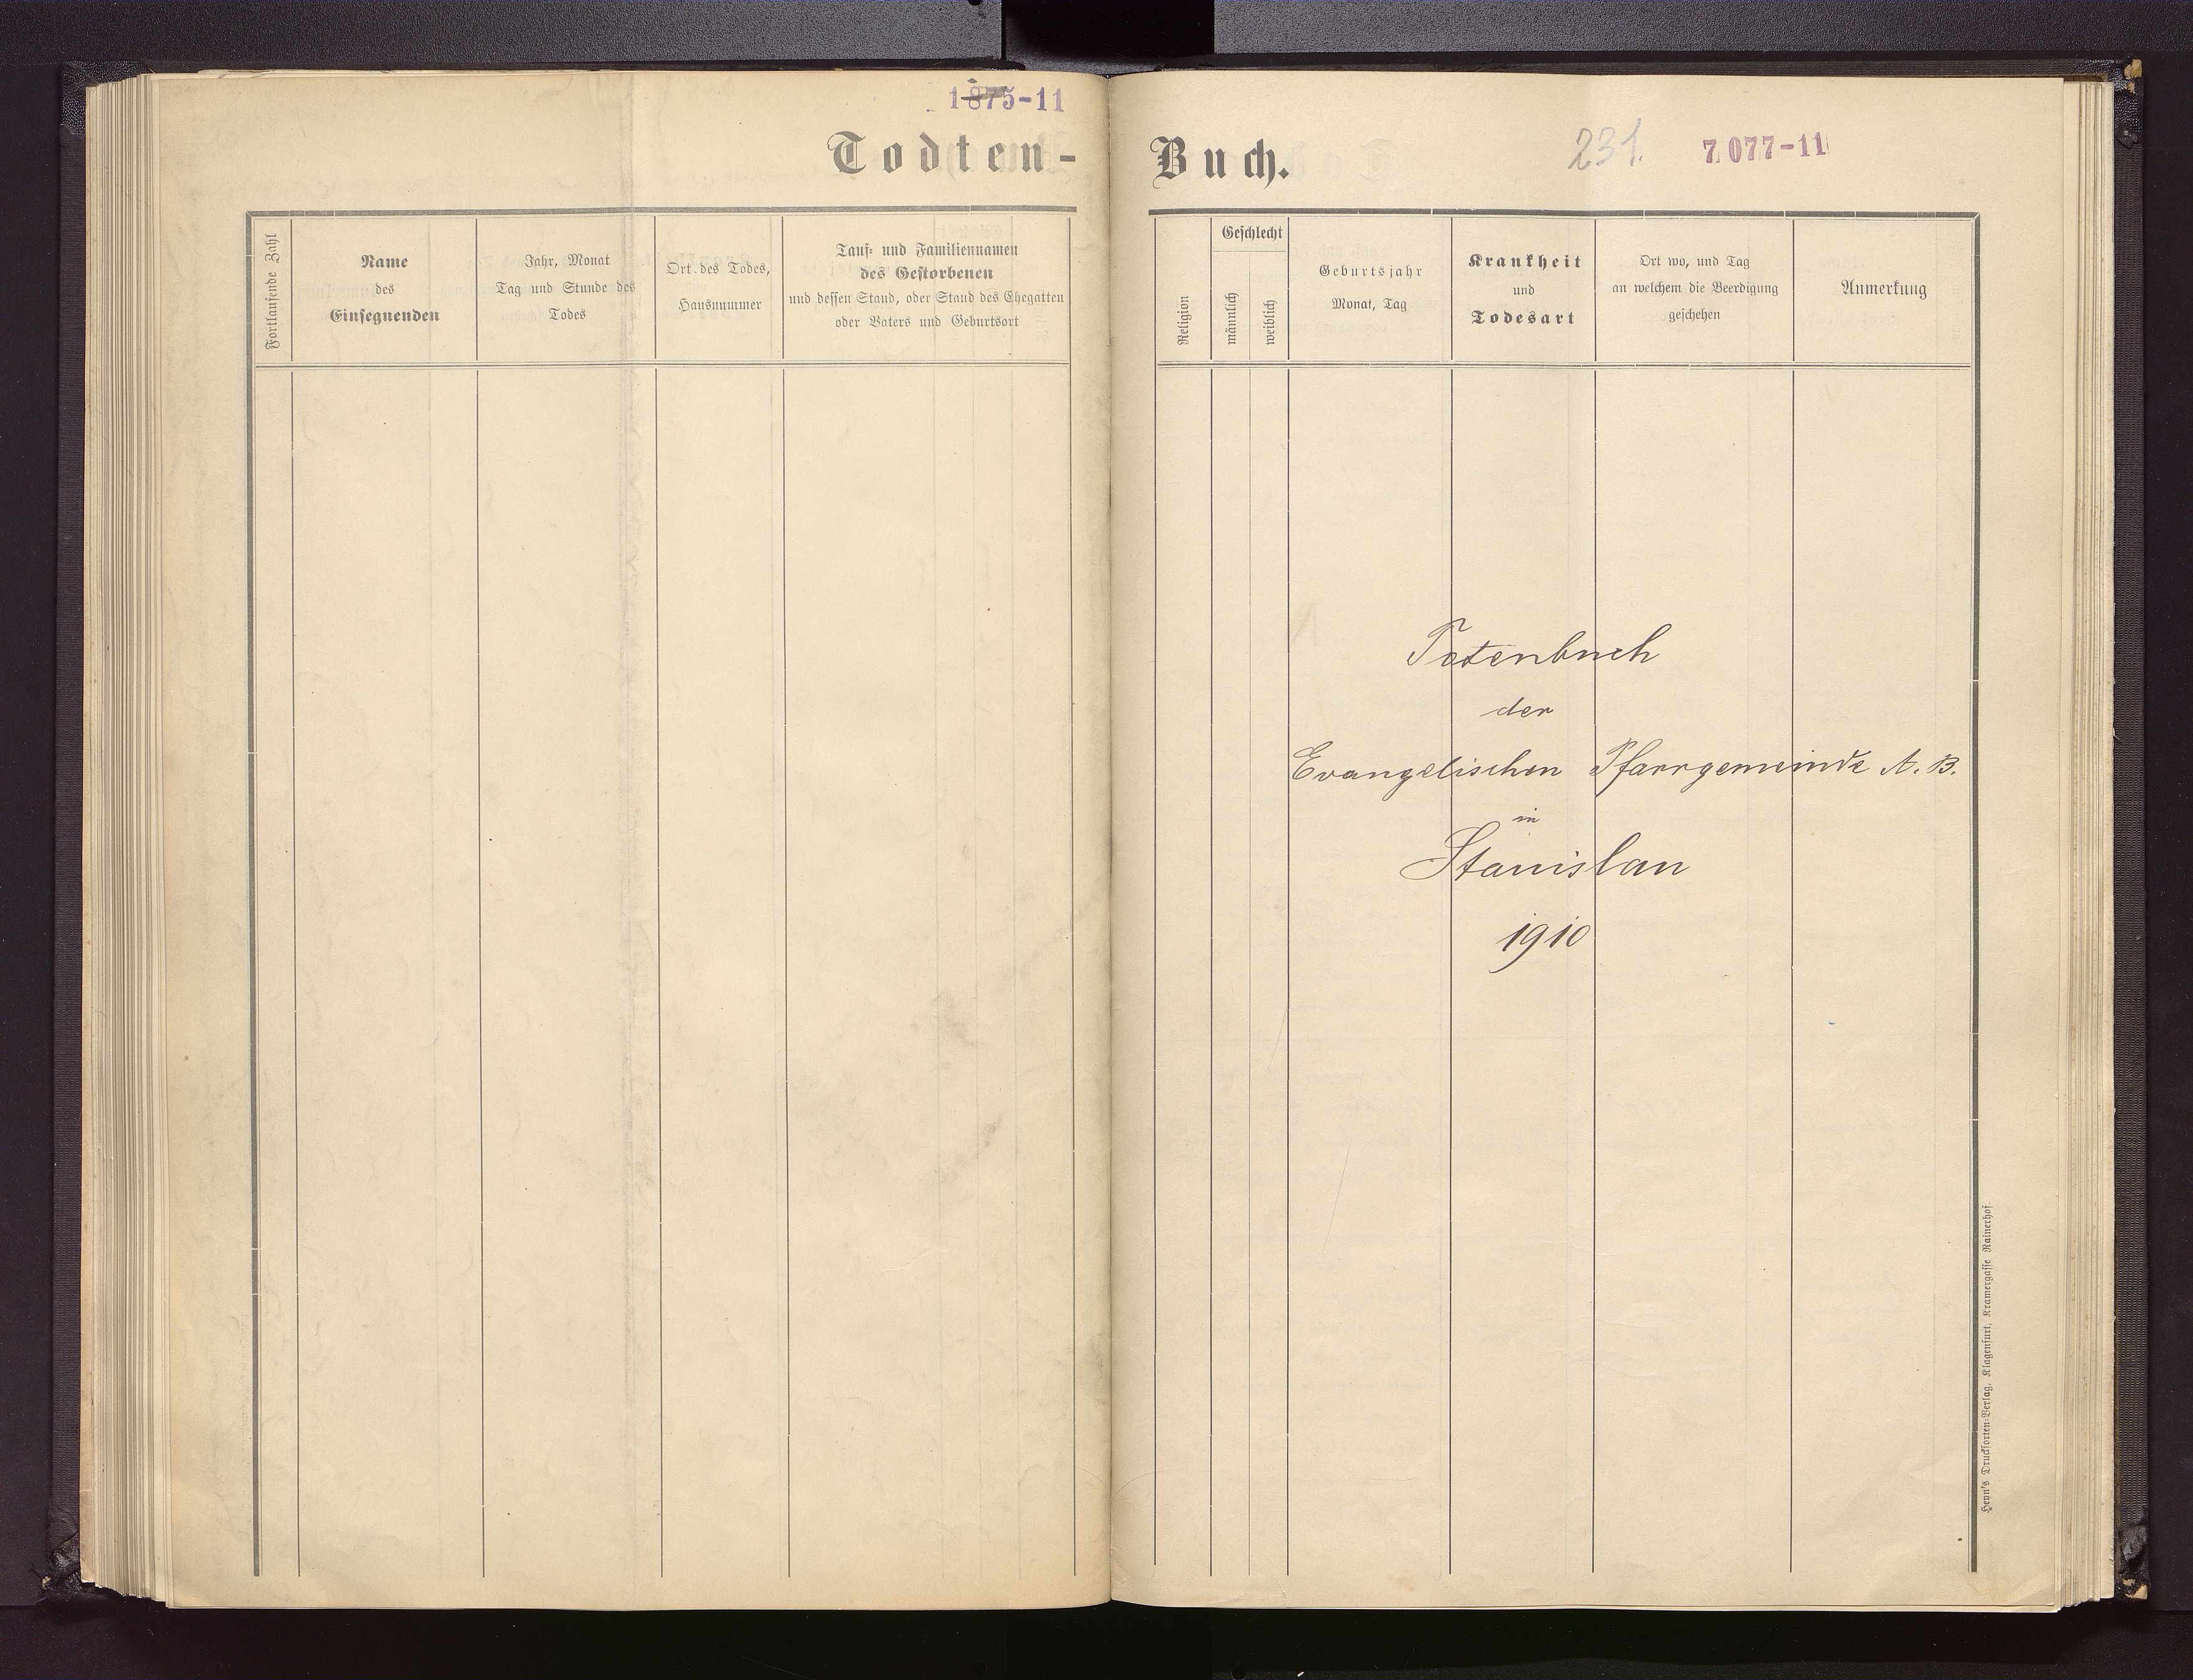 1875-11
Todten-
Fortlaufende Zahl
Name
des
Einsegnenden
Jahr, Monat
Tag und Stunde des
Todes
Ort des Todes,
Hausnummer
Tauf- und Familiennamen
des Gestorbenen
und dessen Stand, oder Stand des Ehegatten
oder Vaters und Geburtsort
Buch.
231.
7077-11
Religion
Geschlecht
männlich
weiblich
Geburtsjahr
Monat, Tag
Krankheit
und
Todesart
Ort wo, und Tag
an welchem die Beerdigung
geschehen
Anmerkung
Totenbuch
der
Evangelischen Pfarrgemeinde A. B.
in
Stanislau
1910
Heyn's Drucksorten-Verlag, Klagenfurt, Kramergasse Rainerhof.